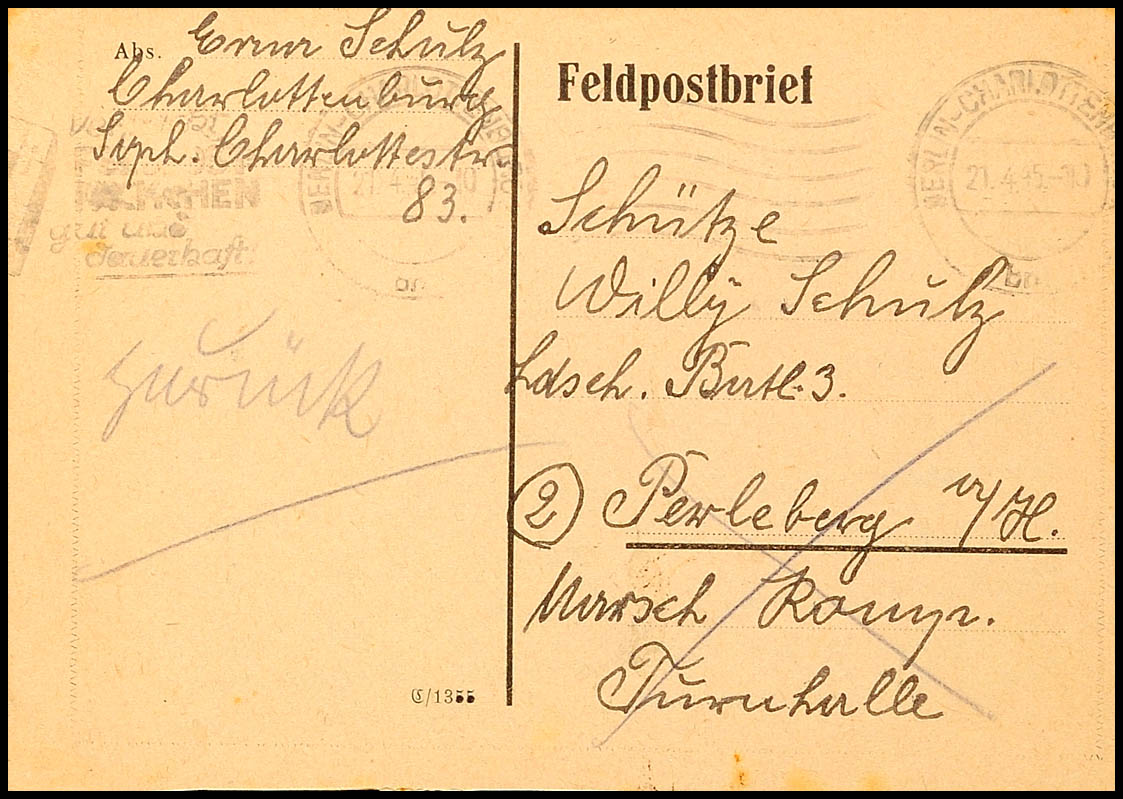 Abs. Erna Schulz
Charlottenburg
Soph. Charlottestr.
83.
gut und
dauerhaft!
BERLIN-CHARLOTTENBURG
21.4.45.-10
Feldpostbrief
BERLIN-CHARLOTTENBURG
21.4.45.-10
Schütze
Willy Schulz
Ldsch. Batl. 3.
2 Perleberg
Marsch Komp.
Turnhalle
zurück
C/1355